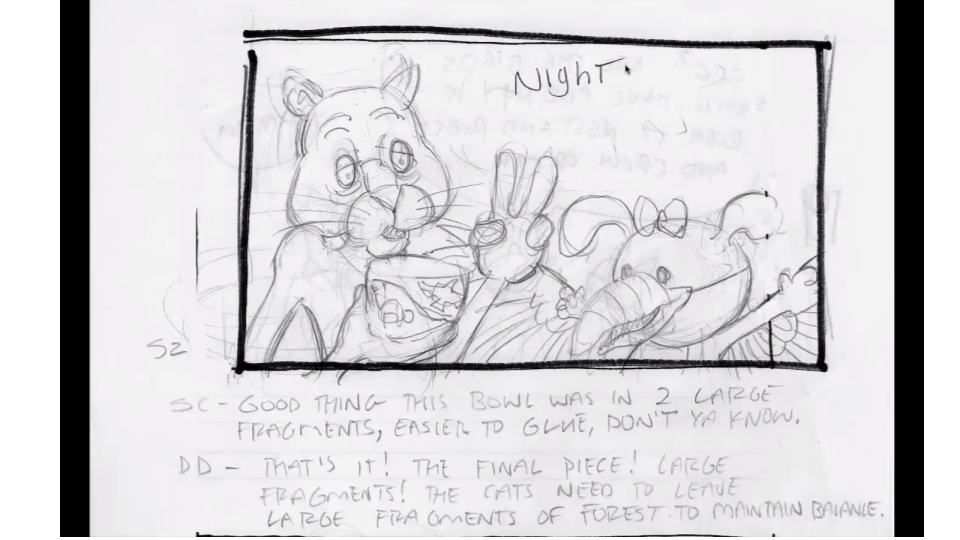 Night
52
SC - GOOD THING THIS BOWL WAS IN 2 LARGE
FRAGMENTS, EASIER TO GLUE, DON'T YA KNOW.
DD - THAT'S IT! THE FINAL PIECE! LARGE
FRAGMENTS! THE CATS NEED TO LEAVE
LARGE FRAGMENTS OF FOREST TO MAINTAIN BALANCE.